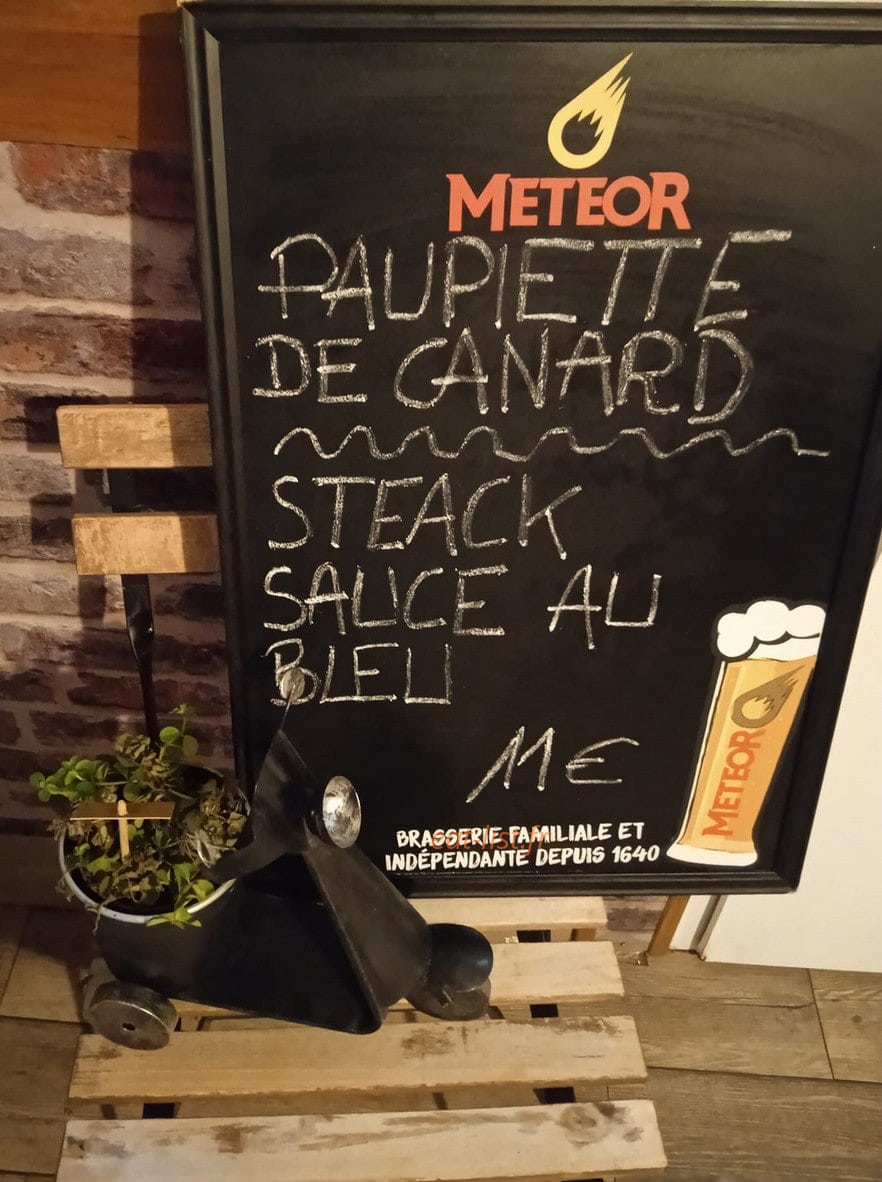 METEOR
PAUPIETTE
DE CANARD
STEACK
SAUCE AU
BLEU
11€
METEOR
BRASSERIE FAMILIALE ET
INDÉPENDANTE DEPUIS 1640